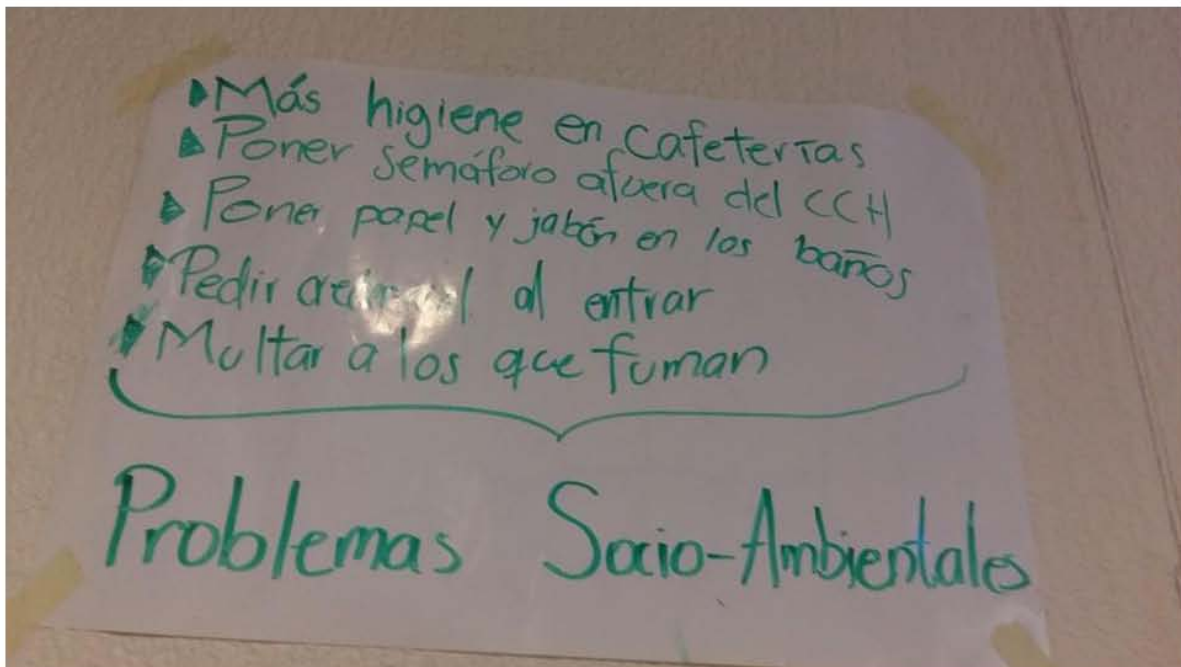 Más higiene en cafeterías
Poner semáforo afuera del CCH
Poner papel y jabón en los baños
Pedir credencial al entrar
Multar a los que fuman
Problemas Socio-Ambientales